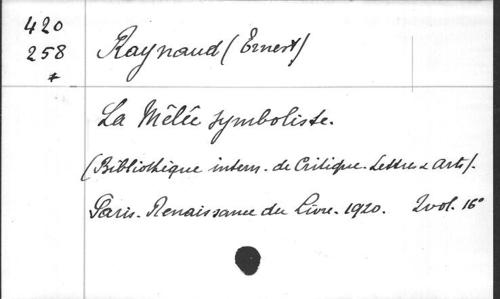 420
258
*
Raynaud (Ernest)
La Mêlée symboliste.
(Bibliothèque intern. de Critique. Lettres & Arts).
Paris. Renaissance du Livre. 1920. 2 vol. 16°